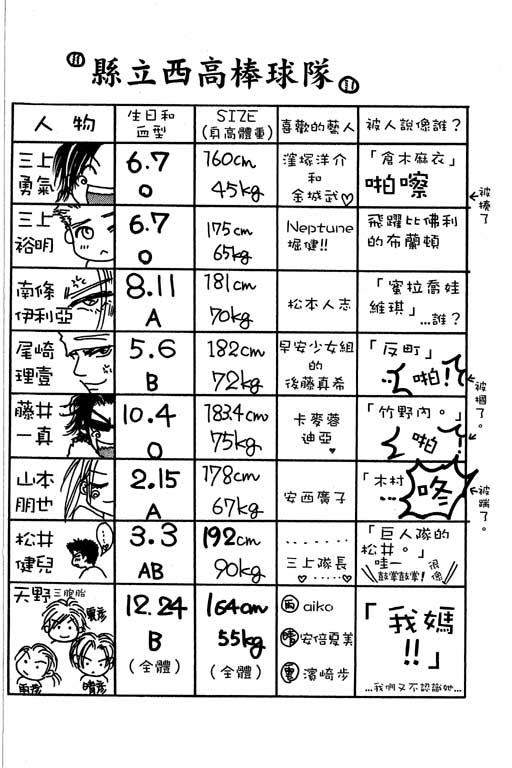 縣立西高棒球隊
人物
生日和
血型
SIZE
(身高體重)
喜歡的藝人
被人說像誰？
三上
勇氣
6.7
O
160cm
45kg
窪塚洋介
和
金城武♡
「倉木麻衣」
啪嚓
被揍了
三上
裕明
6.7
O
175cm
65kg
Neptune
堀健!!
飛躍比佛利
的布蘭頓
南條
伊利亞
8.11
A
181cm
70kg
松本人志
「蜜拉喬娃
維琪」
...誰？
尾崎
理壹
5.6
B
182cm
72kg
早安少女組
的
後藤真希
「反町」
...啪!
被摑了。
藤井
一真
10.4
O
183.4cm
75kg
卡麥蓉
迪亞♥
「竹野內。」
啪!
山本
朋也
2.15
A
178cm
67kg
安西廣子
「木村...
咚
被踹了。
松井
健兒
3.3
AB
192cm
90kg
.......
三上隊長
♡.....♡
「巨人隊的
松井。」
哇—
鼓掌鼓掌!
很像
天野三胞胎
12.24
B
(全體)
164cm
55kg
(全體)
雨 aiko
晴 安倍夏美
雪 濱崎步
「我媽
!!」
...我們又不認識她...
雪彥
雨彥
晴彥